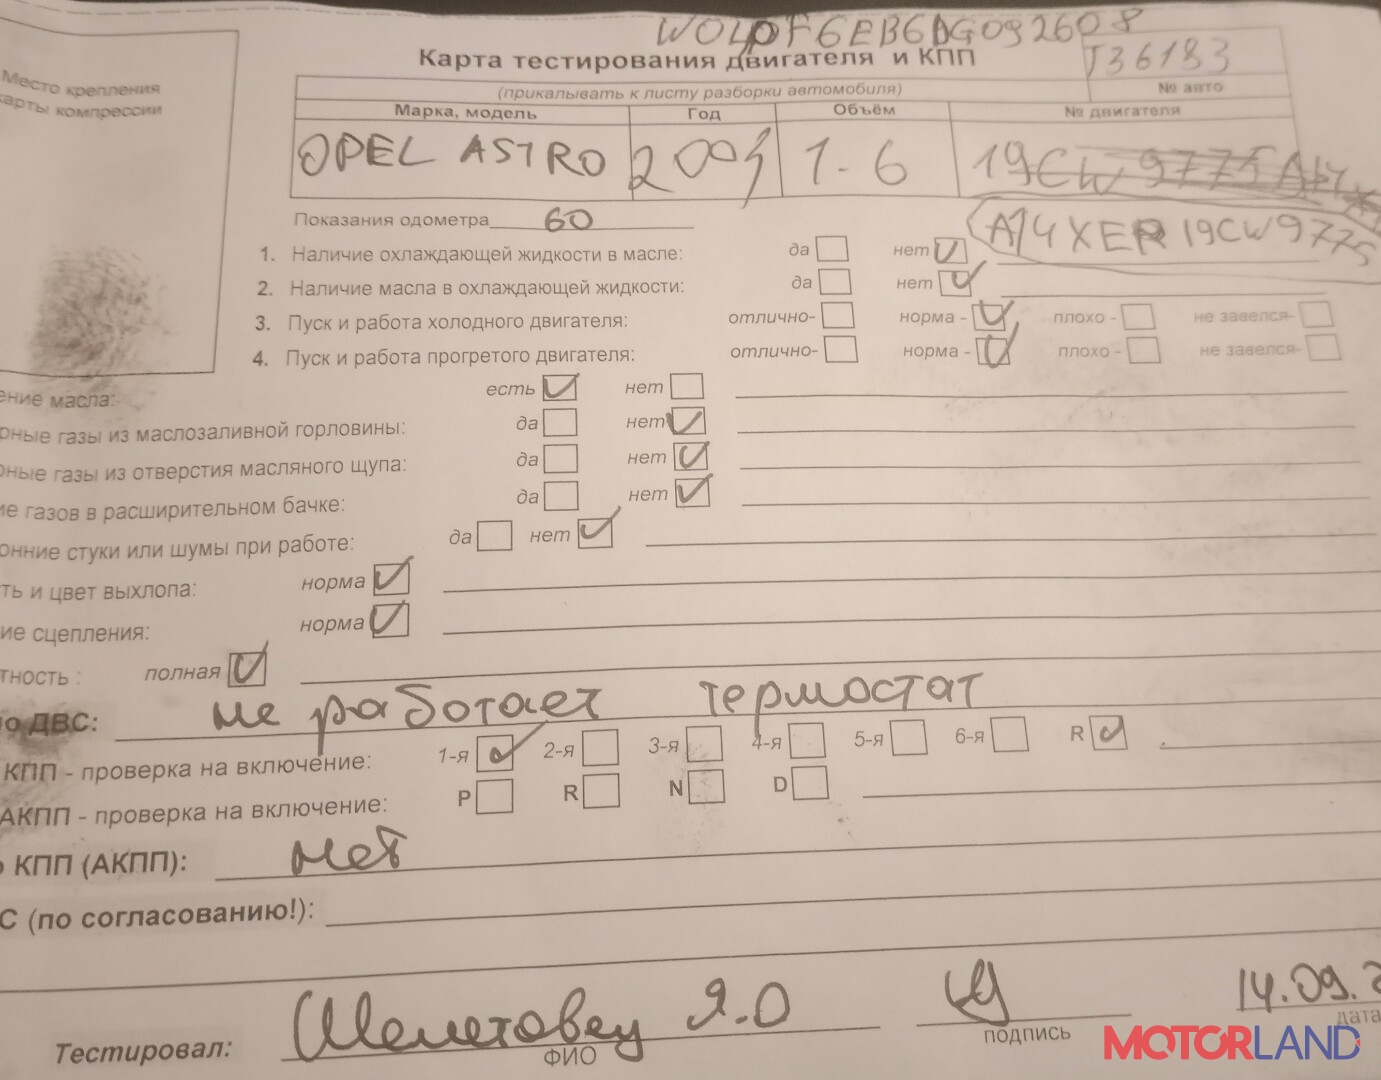 WOLPF6EB6DG092608
Карта тестирования двигателя и КПП
J36183
Место крепления
карты компрессии
(прикалывать к листу разборки автомобиля)
№ авто
Марка, модель Год Объём № двигателя
OPEL ASTRO 2009 1.6 19CW 9775
Показания одометра 60
A14XER 19CW9775
1. Наличие охлаждающей жидкости в масле: да нет
2. Наличие масла в охлаждающей жидкости: да нет
3. Пуск и работа холодного двигателя: отлично- норма - плохо - не завелся-
4. Пуск и работа прогретого двигателя: отлично- норма - плохо - не завелся-
ение масла: есть нет
рные газы из маслозаливной горловины: да нет
рные газы из отверстия масляного щупа: да нет
ие газов в расширительном бачке: да нет
онние стуки или шумы при работе: да нет
ть и цвет выхлопа: норма
ие сцепления: норма
тность : полная
о ДВС: не работает термостат
КПП - проверка на включение: 1-я 2-я 3-я 4-я 5-я 6-я R
АКПП - проверка на включение: P R N D
о КПП (АКПП): нет
С (по согласованию!):
Тестировал: Я.О 14.09.
ФИО подпись дата
MOTORLAND